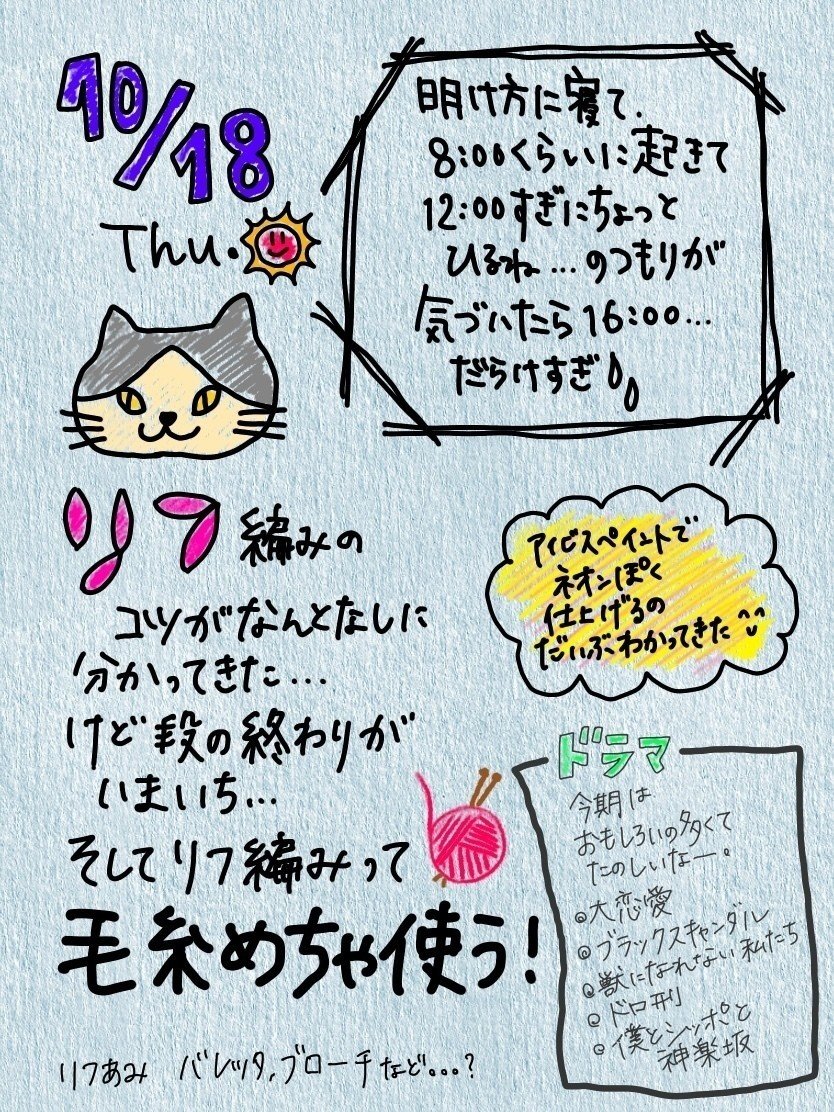 10/18
Thu.
明け方に寝て、
8:00くらいに起きて
12:00すぎにちょっと
ひるね…のつもりが
気づいたら16:00…
だらけすぎ
リフ編みの
コツがなんとなしに
分かってきた…
けど段の終わりが
いまいち…
そしてリフ編みって
毛糸めちゃ使う!
リフあみ バレッタ,ブローチなど...?
アイビスペイントで
ネオンぽく
仕上げるの
だいぶわかってきた
ドラマ
今期は
おもしろいの多くて
たのしいなー。
大恋愛
ブラックスキャンダル
獣になれない私たち
ドロ刑
僕とシッポと
神楽坂